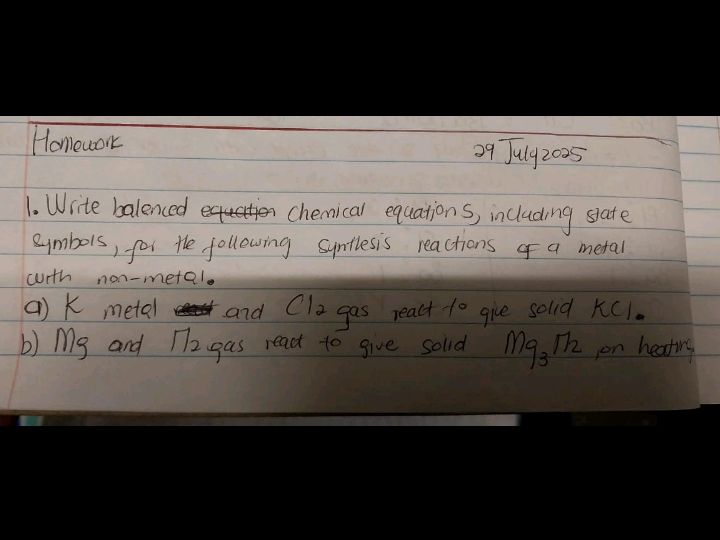 Homework 29 July 2025
1. Write balenced equation chemical equations, including state
symbols, for the following synthesis reactions of a metal
with non-metal.
a) K metal and Cl2 gas react to give solid KCl.
b) Mg and N2 gas react to give solid Mg3N2, on heating